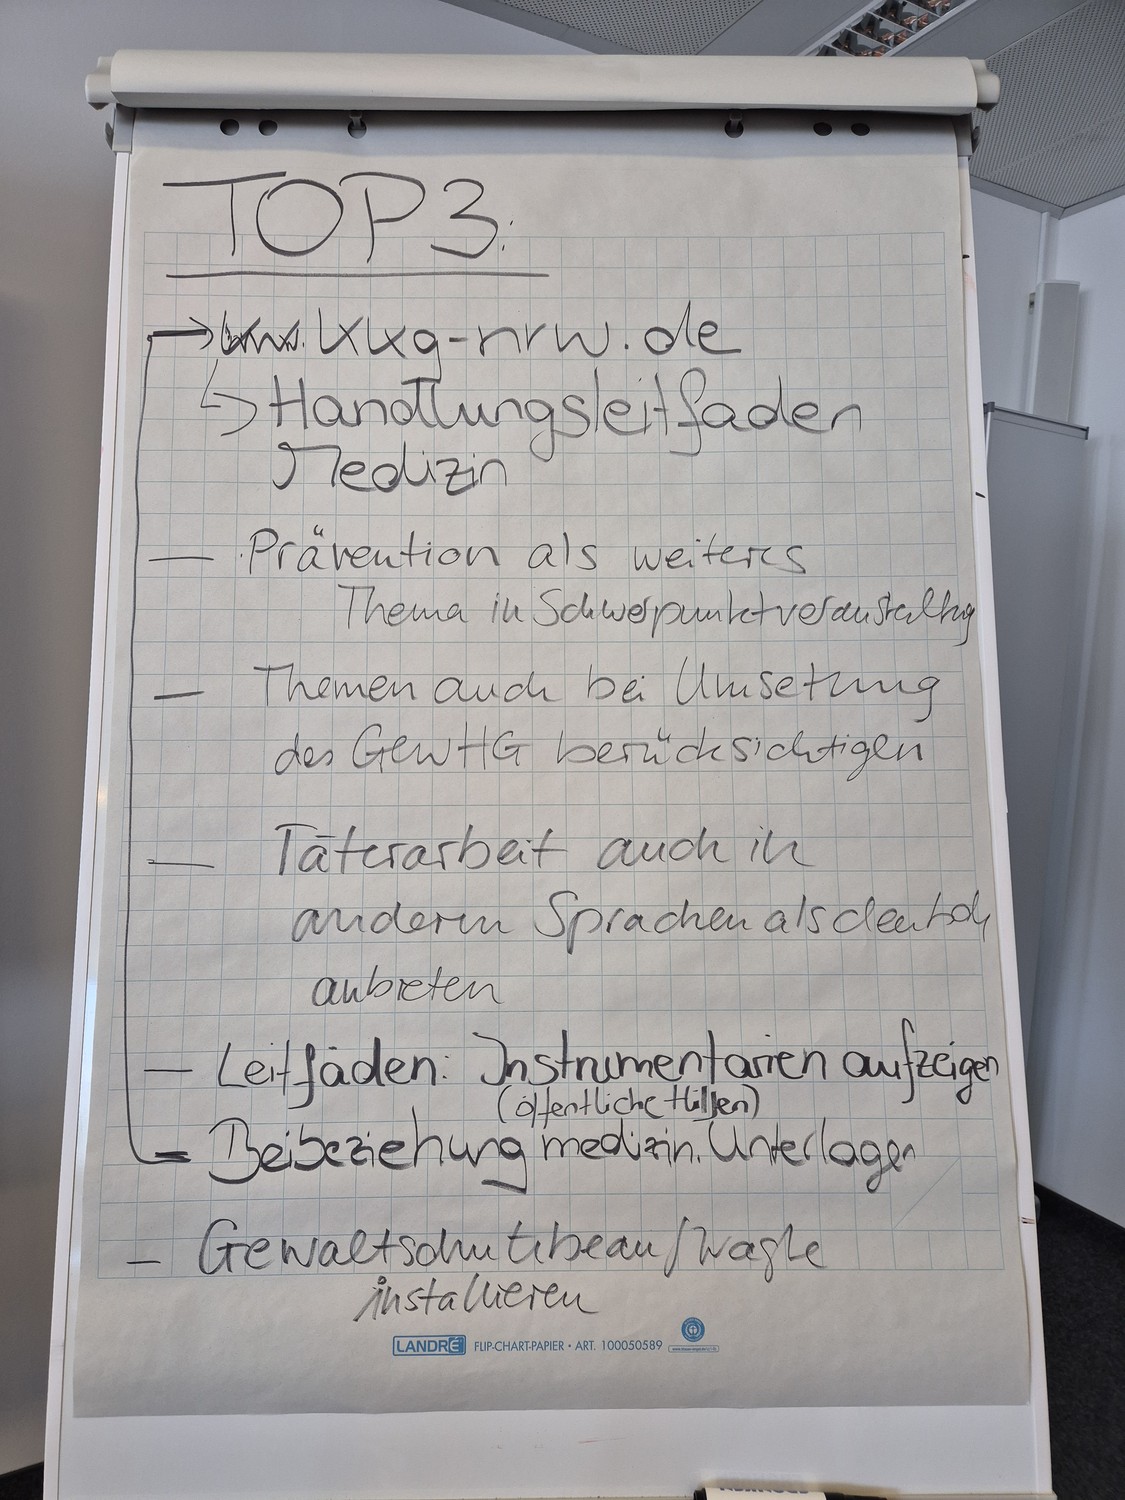 TOP 3:
→ kkg-nrw.de
↳ Handlungsleitfaden
Medizin
— Prävention als weiteres
Thema in Schwerpunktveranstaltung
— Themen auch bei Umsetzung
des GewHG berücksichtigen
— Täterarbeit auch in
anderen Sprachen als deutsch
anbieten
— Leitfäden: Instrumentarien aufzeigen
(öffentliche Hilfen)
— Beibeziehung medizin. Unterlagen
— Gewaltschutzbeauftragte
installieren
LANDRÉ FLIP-CHART-PAPIER • ART. 100050589